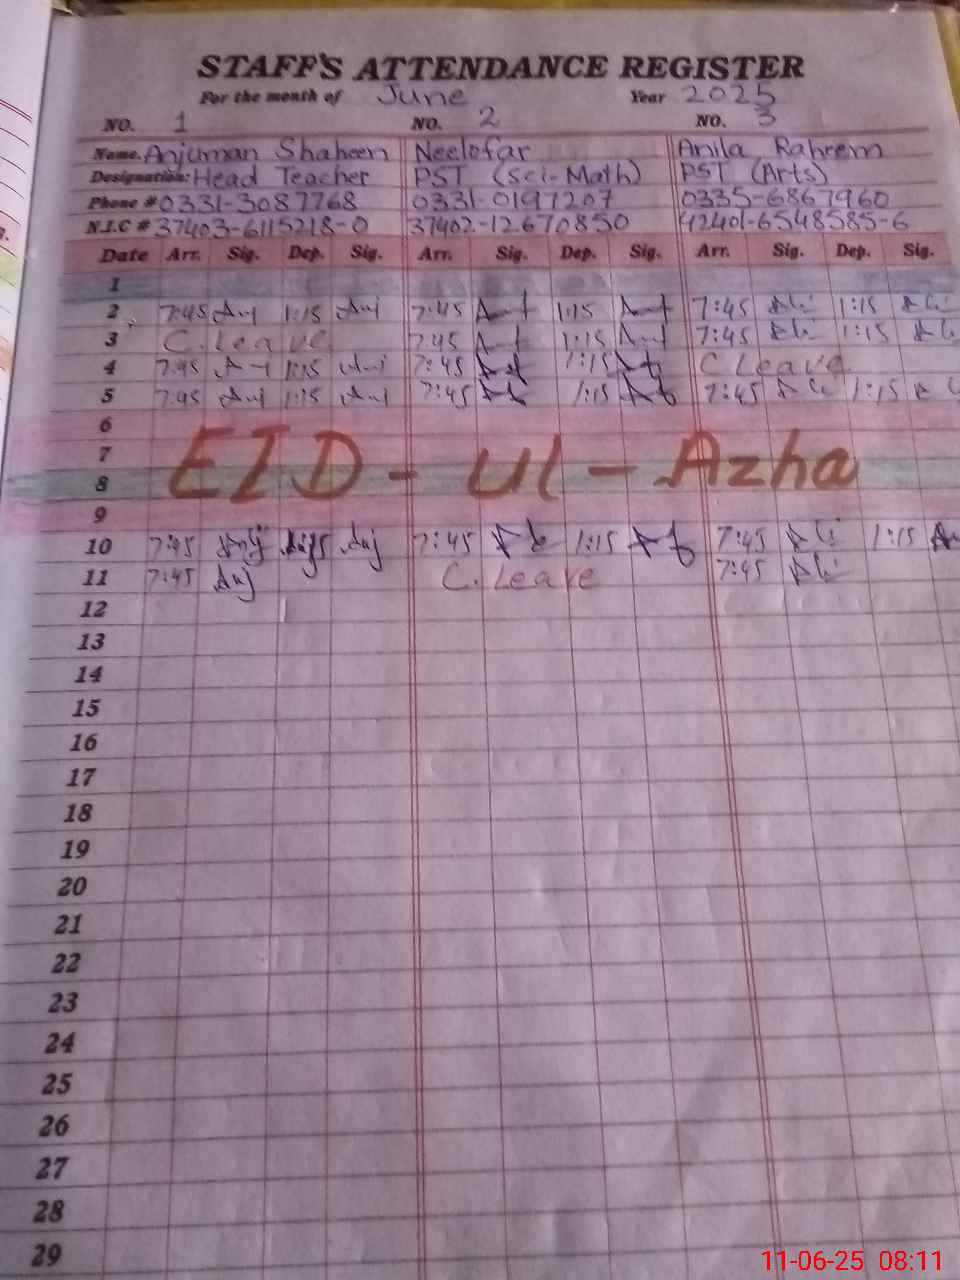 STAFF'S ATTENDANCE REGISTER
For the month of June Year 2025
NO. 1 NO. 2 NO. 3
Name. Anjuman Shaheen Neelofar Anila Raheem
Designation: Head Teacher PST (Sci-Math) PST (Arts)
Phone # 0331-3087768 0331-0197207 0335-6867960
N.I.C # 37403-6115218-0 37402-12670850 42401-6548585-6
Date Arr. Sig. Dep. Sig. Arr. Sig. Dep. Sig. Arr. Sig. Dep. Sig.
1
2 7:45 Anj 1:15 Anj 7:45 1:15 7:45 1:15
3 C. Leave 7:45 1:15 7:45 1:15
4 7:45 1:15 Anj 7:45 1:15 C. Leave
5 7:45 Anj 1:15 Anj 7:45 1:15 7:45 1:15
6
7 EID - Ul - Azha
8
9
10 7:45 Anj Anj 7:45 1:15 7:45 1:15
11 7:45 Anj C. Leave 7:45
12
13
14
15
16
17
18
19
20
21
22
23
24
25
26
27
28
29
11-06-25 08:11